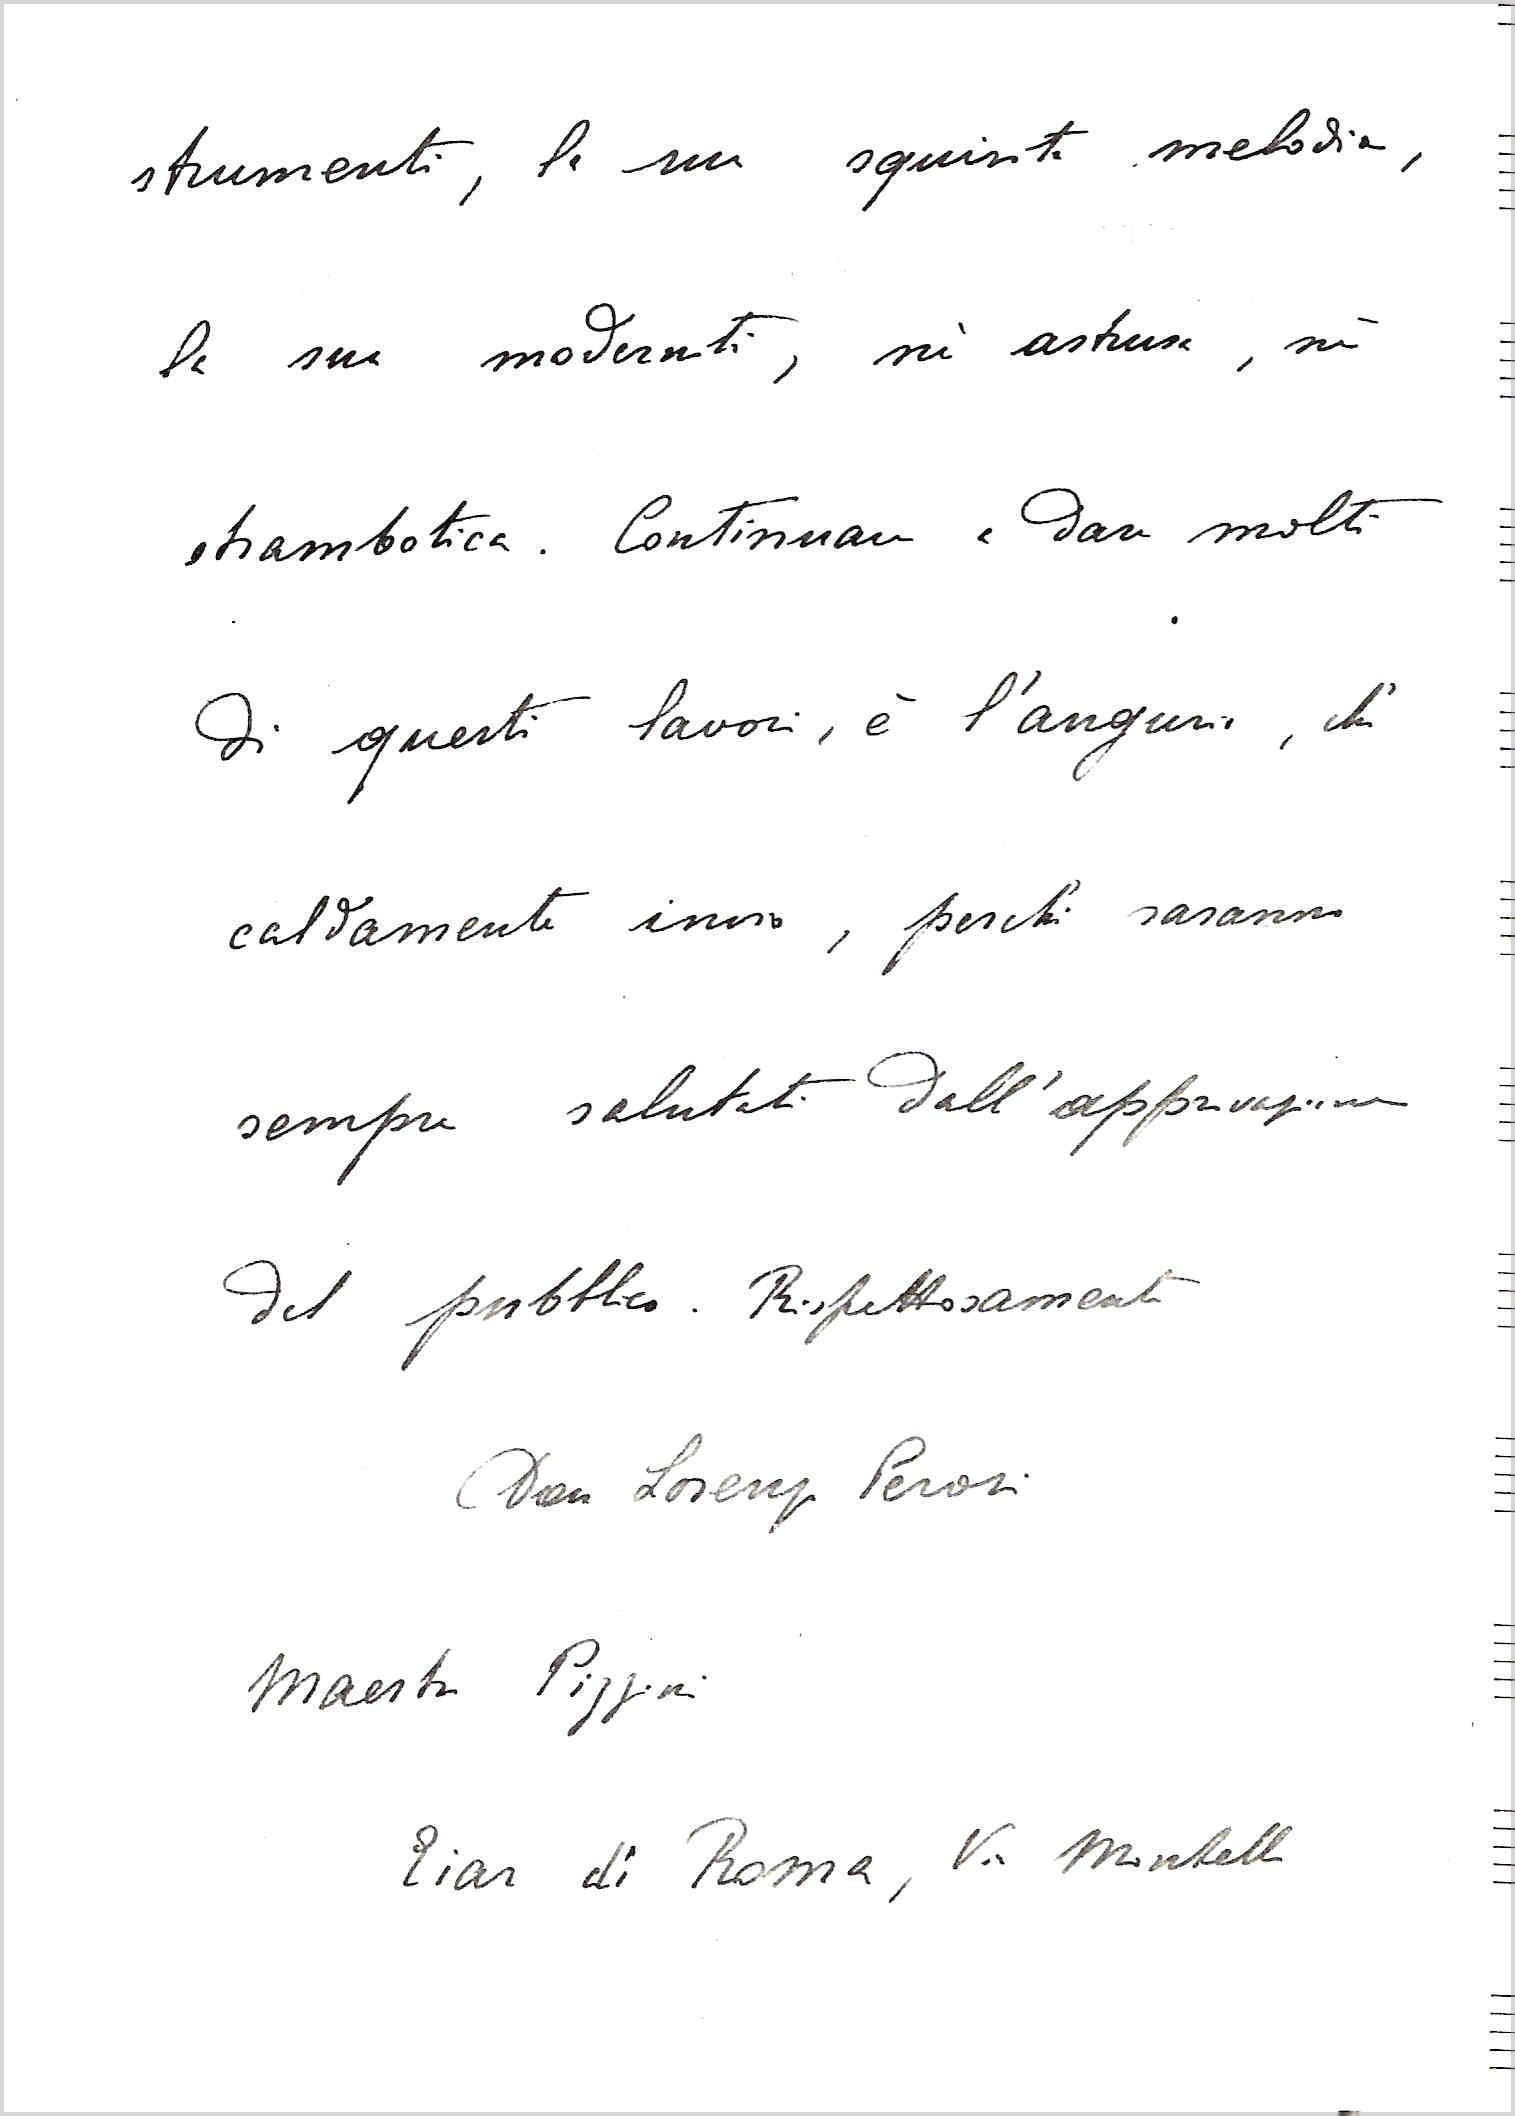 strumenti, la sua squisita melodia,
la sua modernità, nè astrusa, nè
strambotica. Continuare a dare molti
di questi lavori, è l'augurio, ch'
caldamente invio, perchè saranno
sempre salutati dall'approvazione
del pubblico. Rispettosamente
Don Lorenzo Perosi
Maestro Pizzini
Eiar di Roma, Via Montello